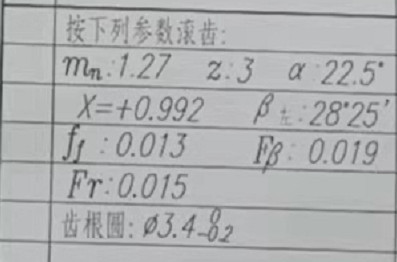 按下列参数滚齿:
mn:1.27 z:3 α:22.5°
X=+0.992 β左:28°25'
ff:0.013 Fβ:0.019
Fr:0.015
齿根圆:ø3.4-0.2